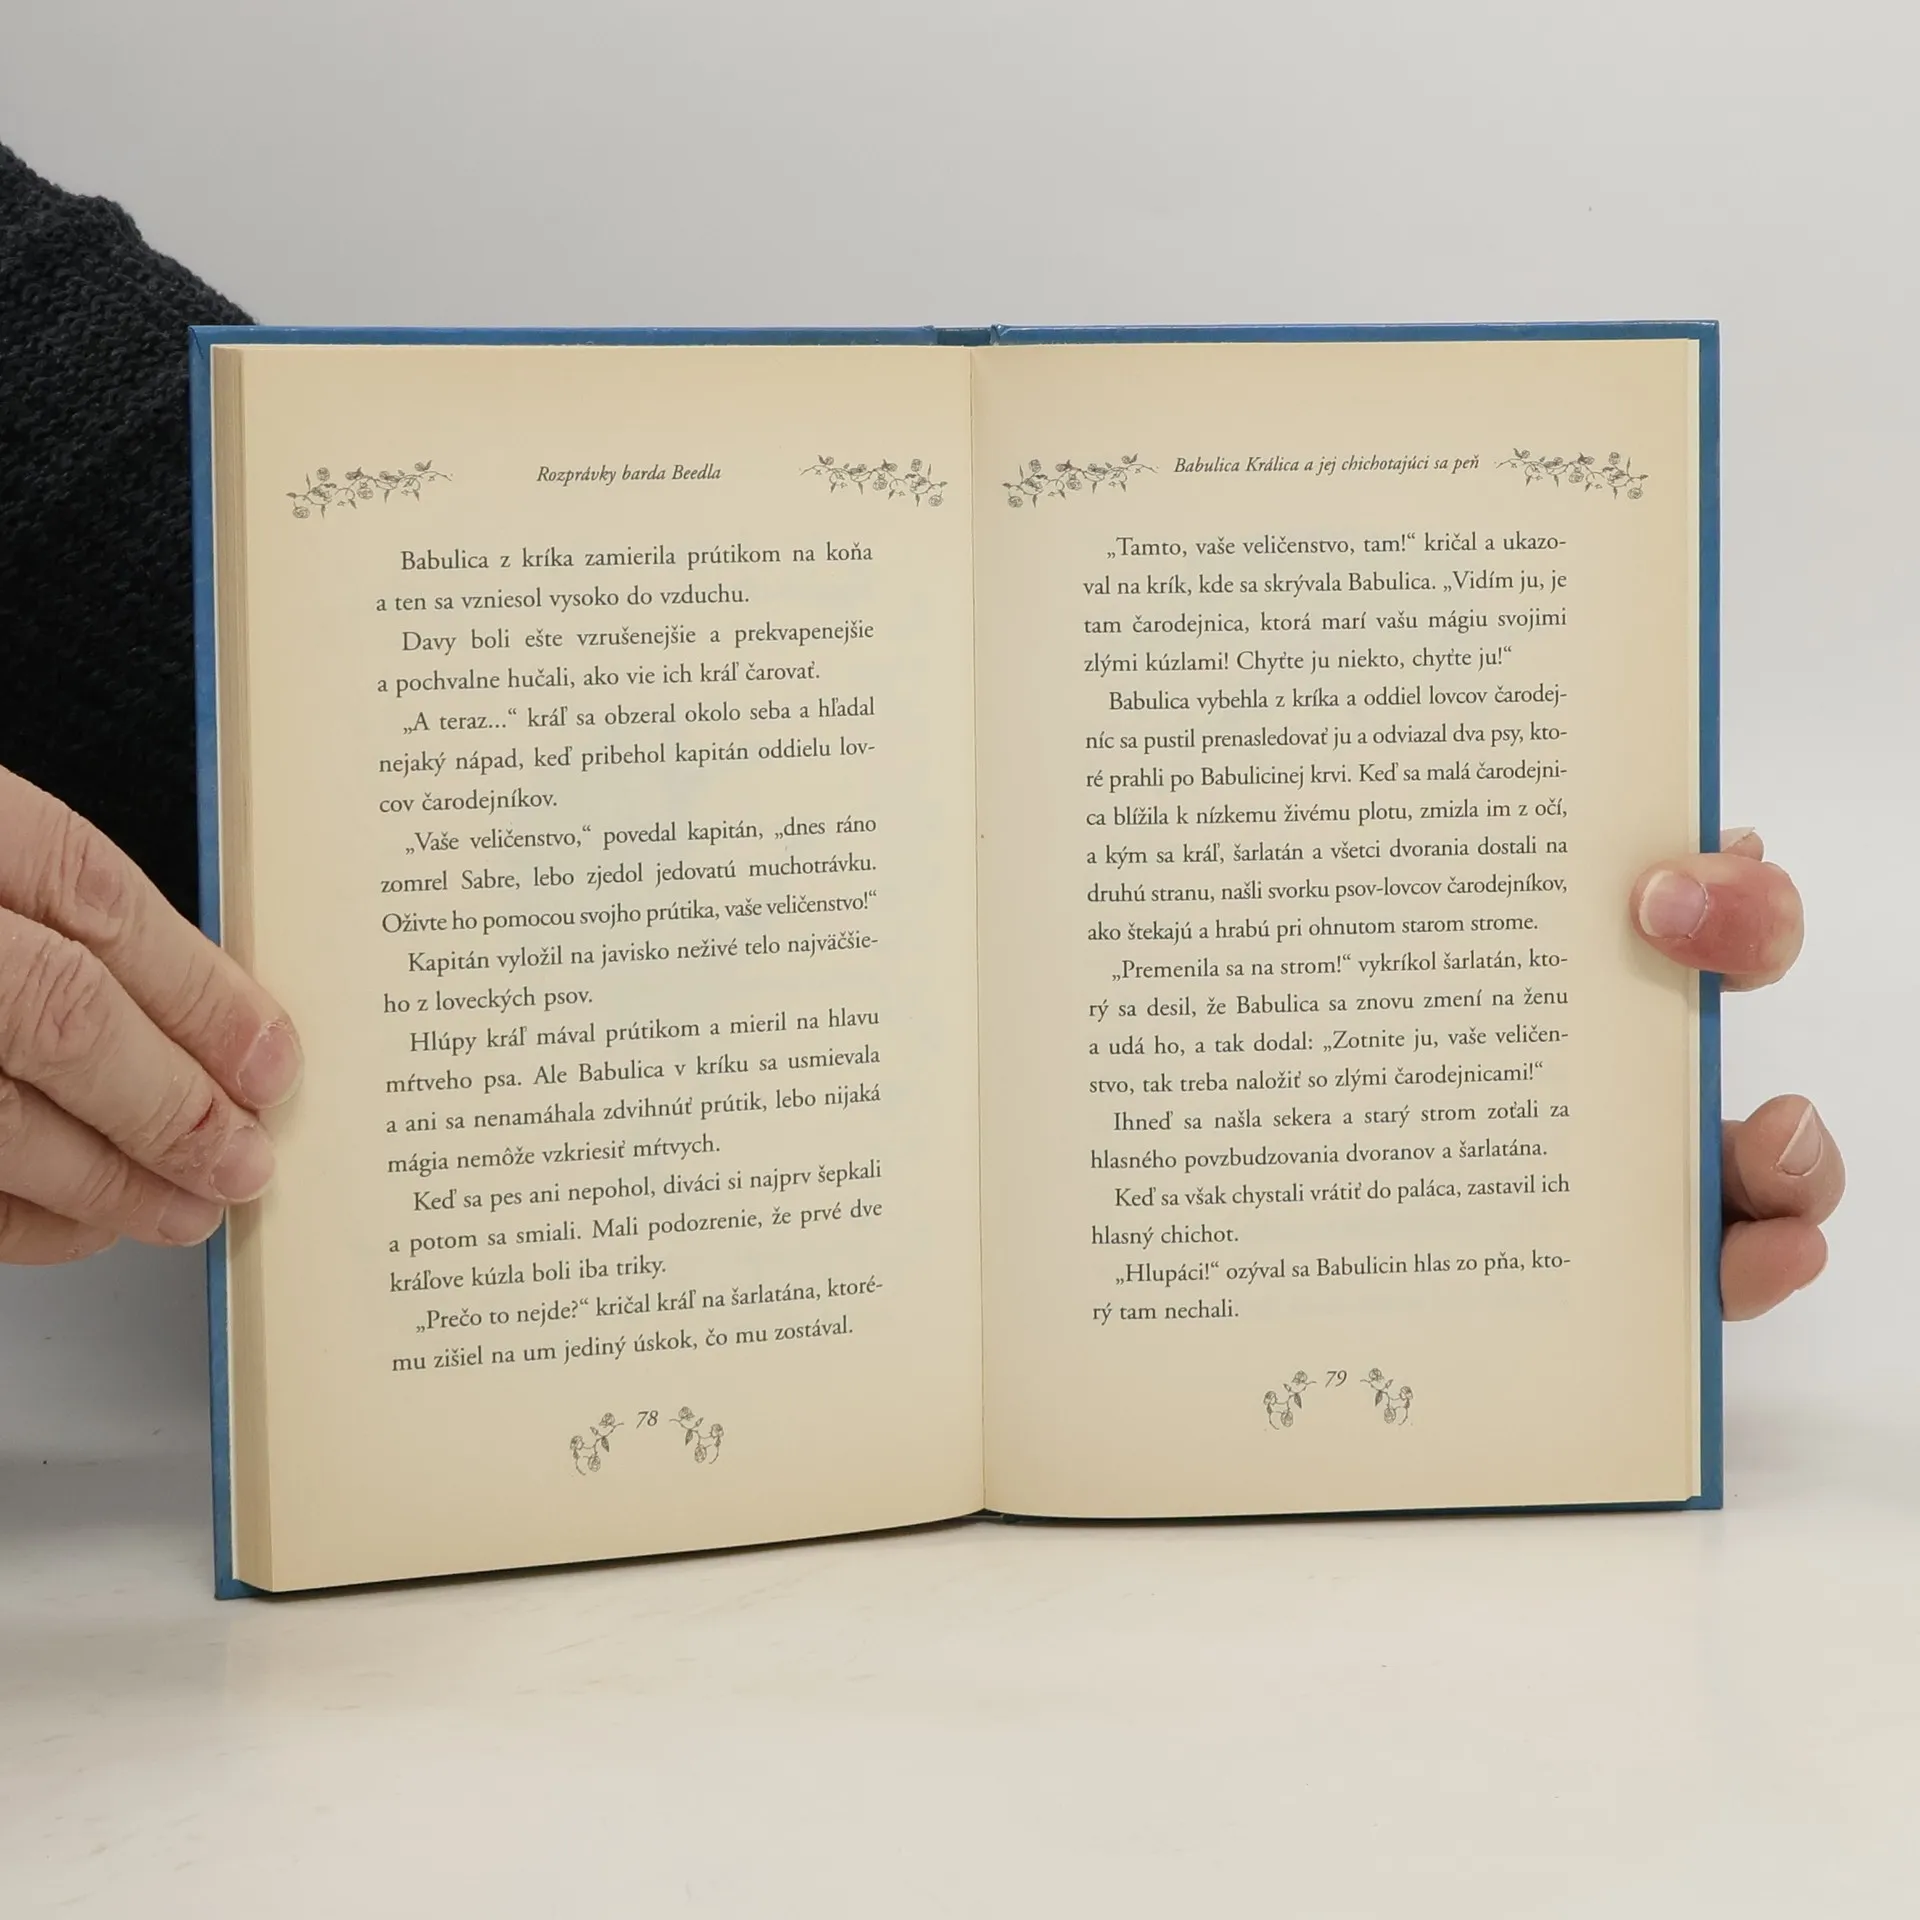 Rozprávky barda Beedla
Babulica z kríka zamierila prútikom na koňa
a ten sa vzniesol vysoko do vzduchu.
Davy boli ešte vzrušenejšie a prekvapenejšie
a pochvalne hučali, ako vie ich kráľ čarovať.
„A teraz...“ kráľ sa obzeral okolo seba a hľadal
nejaký nápad, keď pribehol kapitán oddielu lov-
cov čarodejníkov.
„Vaše veličenstvo,“ povedal kapitán, „dnes ráno
zomrel Sabre, lebo zjedol jedovatú muchotrávku.
Oživte ho pomocou svojho prútika, vaše veličenstvo!“
Kapitán vyložil na javisko neživé telo najväčšie-
ho z loveckých psov.
Hlúpy kráľ mával prútikom a mieril na hlavu
mŕtveho psa. Ale Babulica v kríku sa usmievala
a ani sa nenamáhala zdvihnúť prútik, lebo nijaká
mágia nemôže vzkriesiť mŕtvych.
Keď sa pes ani nepohol, diváci si najprv šepkali
a potom sa smiali. Mali podozrenie, že prvé dve
kráľove kúzla boli iba triky.
„Prečo to nejde?“ kričal kráľ na šarlatána, ktoré-
mu zišiel na um jediný úskok, čo mu zostával.
78
Babulica Králica a jej chichotajúci sa peň
„Tamto, vaše veličenstvo, tam!“ kričal a ukazo-
val na krík, kde sa skrývala Babulica. „Vidím ju, je
tam čarodejnica, ktorá marí vašu mágiu svojimi
zlými kúzlami! Chyťte ju niekto, chyťte ju!“
Babulica vybehla z kríka a oddiel lovcov čarodej-
níc sa pustil prenasledovať ju a odviazal dva psy, kto-
ré prahli po Babulicinej krvi. Keď sa malá čarodejni-
ca blížila k nízkemu živému plotu, zmizla im z očí,
a kým sa kráľ, šarlatán a všetci dvorania dostali na
druhú stranu, našli svorku psov-lovcov čarodejníkov,
ako štekajú a hrabú pri ohnutom starom strome.
„Premenila sa na strom!“ vykríkol šarlatán, kto-
rý sa desil, že Babulica sa znovu zmení na ženu
a udá ho, a tak dodal: „Zotnite ju, vaše veličen-
stvo, tak treba naložiť so zlými čarodejnicami!“
Ihneď sa našla sekera a starý strom zoťali za
hlasného povzbudzovania dvoranov a šarlatána.
Keď sa však chystali vrátiť do paláca, zastavil ich
hlasný chichot.
„Hlupáci!“ ozýval sa Babulicin hlas zo pňa, kto-
rý tam nechali.
79